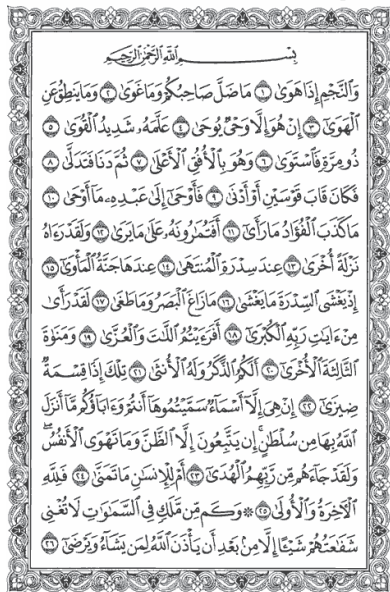 بِسْمِ اللَّهِ الرَّحْمَٰنِ الرَّحِيمِ
وَالنَّجْمِ إِذَا هَوَىٰ ١ مَا ضَلَّ صَاحِبُكُمْ وَمَا غَوَىٰ ٢ وَمَا يَنطِقُ عَنِ
الْهَوَىٰ ٣ إِنْ هُوَ إِلَّا وَحْيٌ يُوحَىٰ ٤ عَلَّمَهُ شَدِيدُ الْقُوَىٰ ٥
ذُو مِرَّةٍ فَاسْتَوَىٰ ٦ وَهُوَ بِالْأُفُقِ الْأَعْلَىٰ ٧ ثُمَّ دَنَا فَتَدَلَّىٰ ٨
فَكَانَ قَابَ قَوْسَيْنِ أَوْ أَدْنَىٰ ٩ فَأَوْحَىٰ إِلَىٰ عَبْدِهِ مَا أَوْحَىٰ ١٠
مَا كَذَبَ الْفُؤَادُ مَا رَأَىٰ ١١ أَفَتُمَارُونَهُ عَلَىٰ مَا يَرَىٰ ١٢ وَلَقَدْ رَءَاهُ
نَزْلَةً أُخْرَىٰ ١٣ عِندَ سِدْرَةِ الْمُنتَهَىٰ ١٤ عِندَهَا جَنَّةُ الْمَأْوَىٰ ١٥
إِذْ يَغْشَى السِّدْرَةَ مَا يَغْشَىٰ ١٦ مَا زَاغَ الْبَصَرُ وَمَا طَغَىٰ ١٧ لَقَدْ رَأَىٰ
مِنْ ءَايَاتِ رَبِّهِ الْكُبْرَىٰ ١٨ أَفَرَءَيْتُمُ اللَّاتَ وَالْعُزَّىٰ ١٩ وَمَنَوٰةَ
الثَّالِثَةَ الْأُخْرَىٰ ٢٠ أَلَكُمُ الذَّكَرُ وَلَهُ الْأُنثَىٰ ٢١ تِلْكَ إِذًا قِسْمَةٌ
ضِيزَىٰ ٢٢ إِنْ هِيَ إِلَّا أَسْمَاءٌ سَمَّيْتُمُوهَا أَنتُمْ وَءَابَاؤُكُم مَّا أَنزَلَ
اللَّهُ بِهَا مِن سُلْطَانٍ ۚ إِن يَتَّبِعُونَ إِلَّا الظَّنَّ وَمَا تَهْوَى الْأَنفُسُ ۖ
وَلَقَدْ جَاءَهُم مِّن رَّبِّهِمُ الْهُدَىٰ ٢٣ أَمْ لِلْإِنسَانِ مَا تَمَنَّىٰ ٢٤ فَلِلَّهِ
الْآخِرَةُ وَالْأُولَىٰ ٢٥ ۞ وَكَم مِّن مَّلَكٍ فِي السَّمَاوَاتِ لَا تُغْنِي
شَفَاعَتُهُمْ شَيْئًا إِلَّا مِن بَعْدِ أَن يَأْذَنَ اللَّهُ لِمَن يَشَاءُ وَيَرْضَىٰ ٢٦